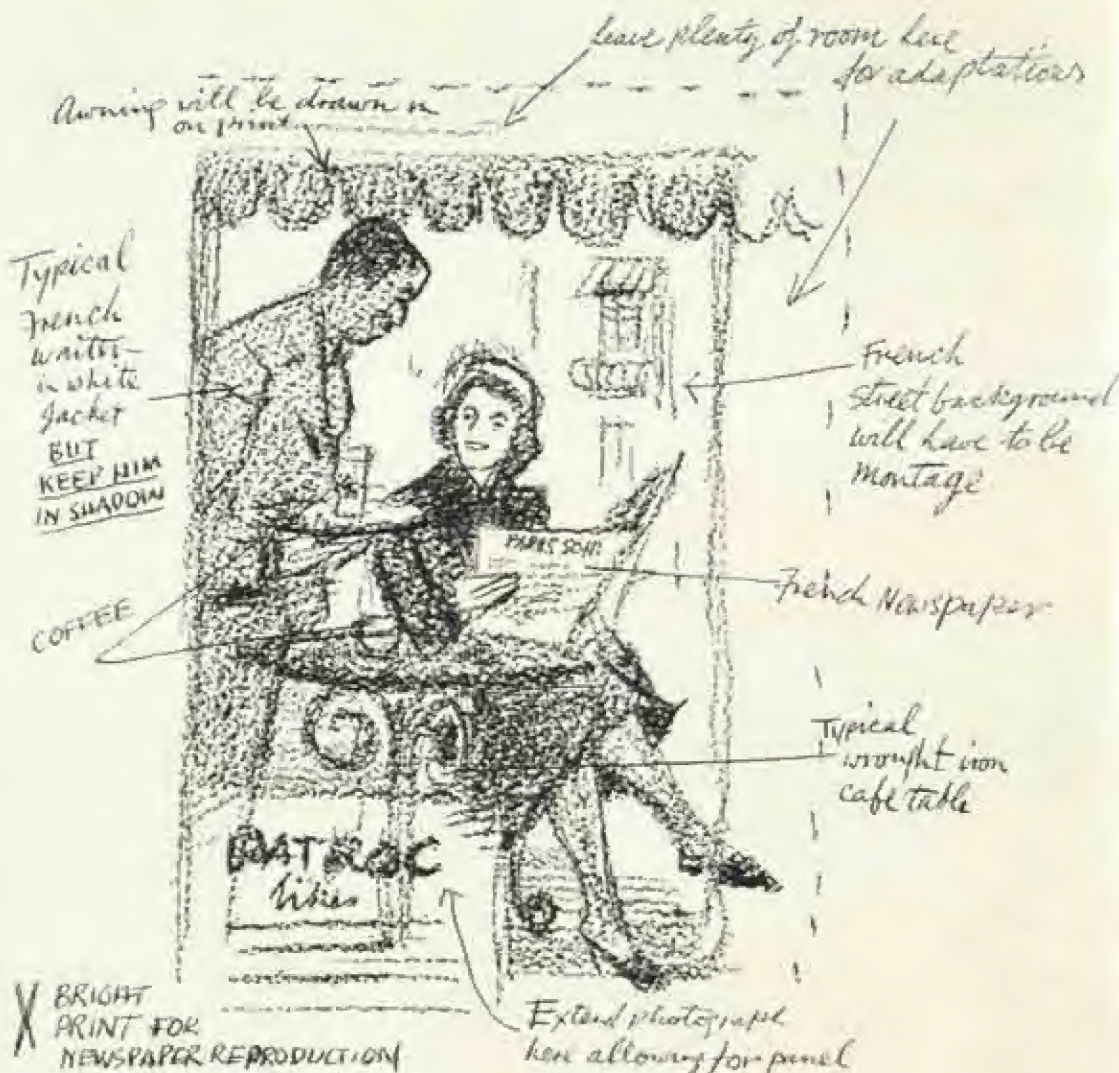 leave plenty of room here
for adaptations
Awning will be drawn in
on print
Typical
French
waiter
in white
Jacket
BUT
KEEP HIM
IN SHADOW
French
Street background
will have to be
Montage
PARIS SOIR
French Newspaper
COFFEE
Typical
wrought iron
cafe table
X BRIGHT
PRINT FOR
NEWSPAPER REPRODUCTION
Extend photograph
here allowing for panel